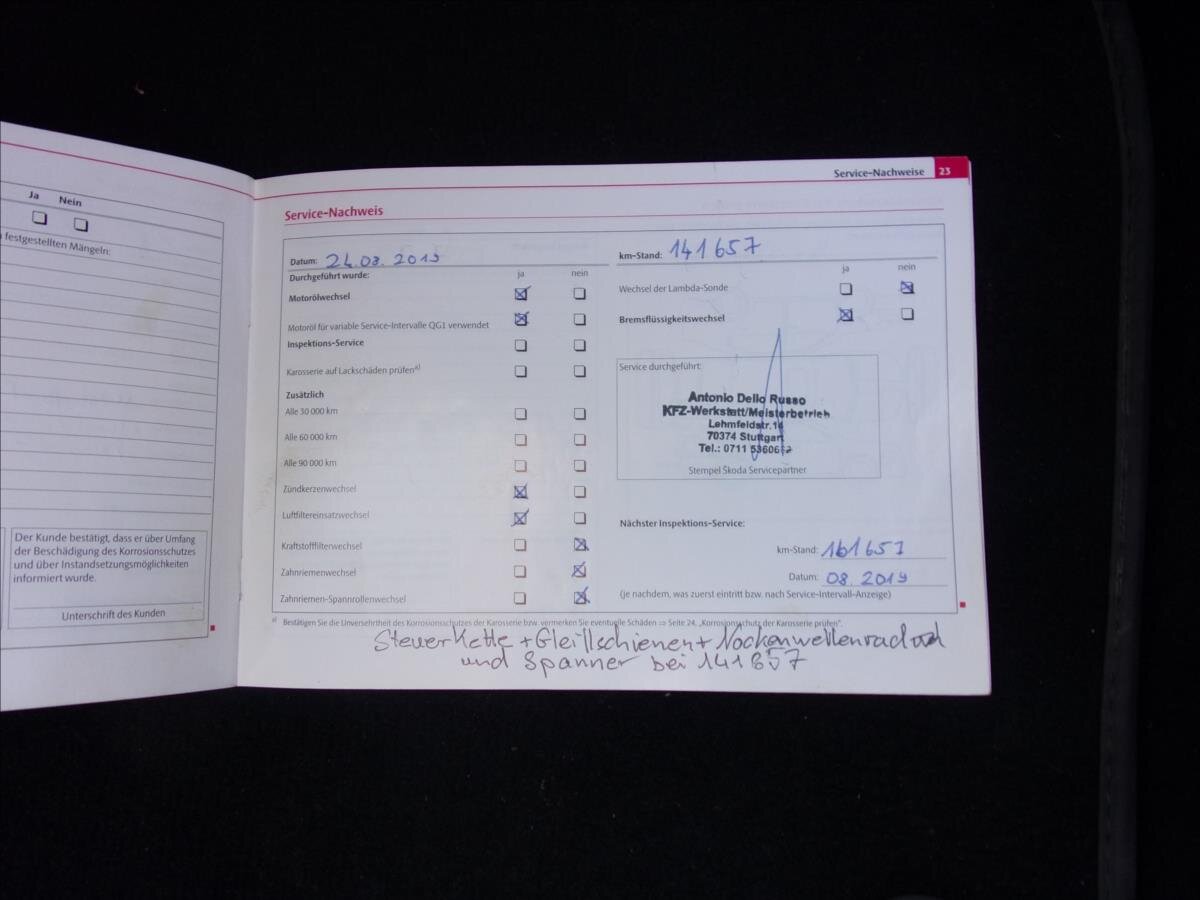 Ja Nein
festgestellten Mängeln:
Der Kunde bestätigt, dass er über Umfang
der Beschädigung des Korrosionsschutzes
und über Instandsetzungsmöglichkeiten
informiert wurde.
Unterschrift des Kunden
Service-Nachweise 23
Service-Nachweis
Datum: 24.08.2019
Durchgeführt wurde: ja nein
Motorölwechsel
Motoröl für variable Service-Intervalle QG1 verwendet
Inspektions-Service
Karosserie auf Lackschäden prüfen a)
Zusätzlich
Alle 30 000 km
Alle 60 000 km
Alle 90 000 km
Zündkerzenwechsel
Luftfiltereinsatzwechsel
Kraftstofffilterwechsel
Zahnriemenwechsel
Zahnriemen-Spannrollenwechsel
km-Stand: 141657
ja nein
Wechsel der Lambda-Sonde
Bremsflüssigkeitswechsel
Service durchgeführt:
Antonio Dello Russo
KFZ-Werkstatt/Meisterbetrieb
Lehmfeldstr.
70374 Stuttgart
Tel.: 0711
Stempel Škoda Servicepartner
Nächster Inspektions-Service:
km-Stand: 161657
Datum: 08.2019
(je nachdem, was zuerst eintritt bzw. nach Service-Intervall-Anzeige)
a) Bestätigen Sie die Unversehrtheit des Korrosionsschutzes der Karosserie bzw. vermerken Sie eventuelle Schäden ⇒ Seite 24, „Korrosionsschutz der Karosserie prüfen".
Steuerkette + Gleitschienen + Nockenwellenrad
und Spanner bei 141657